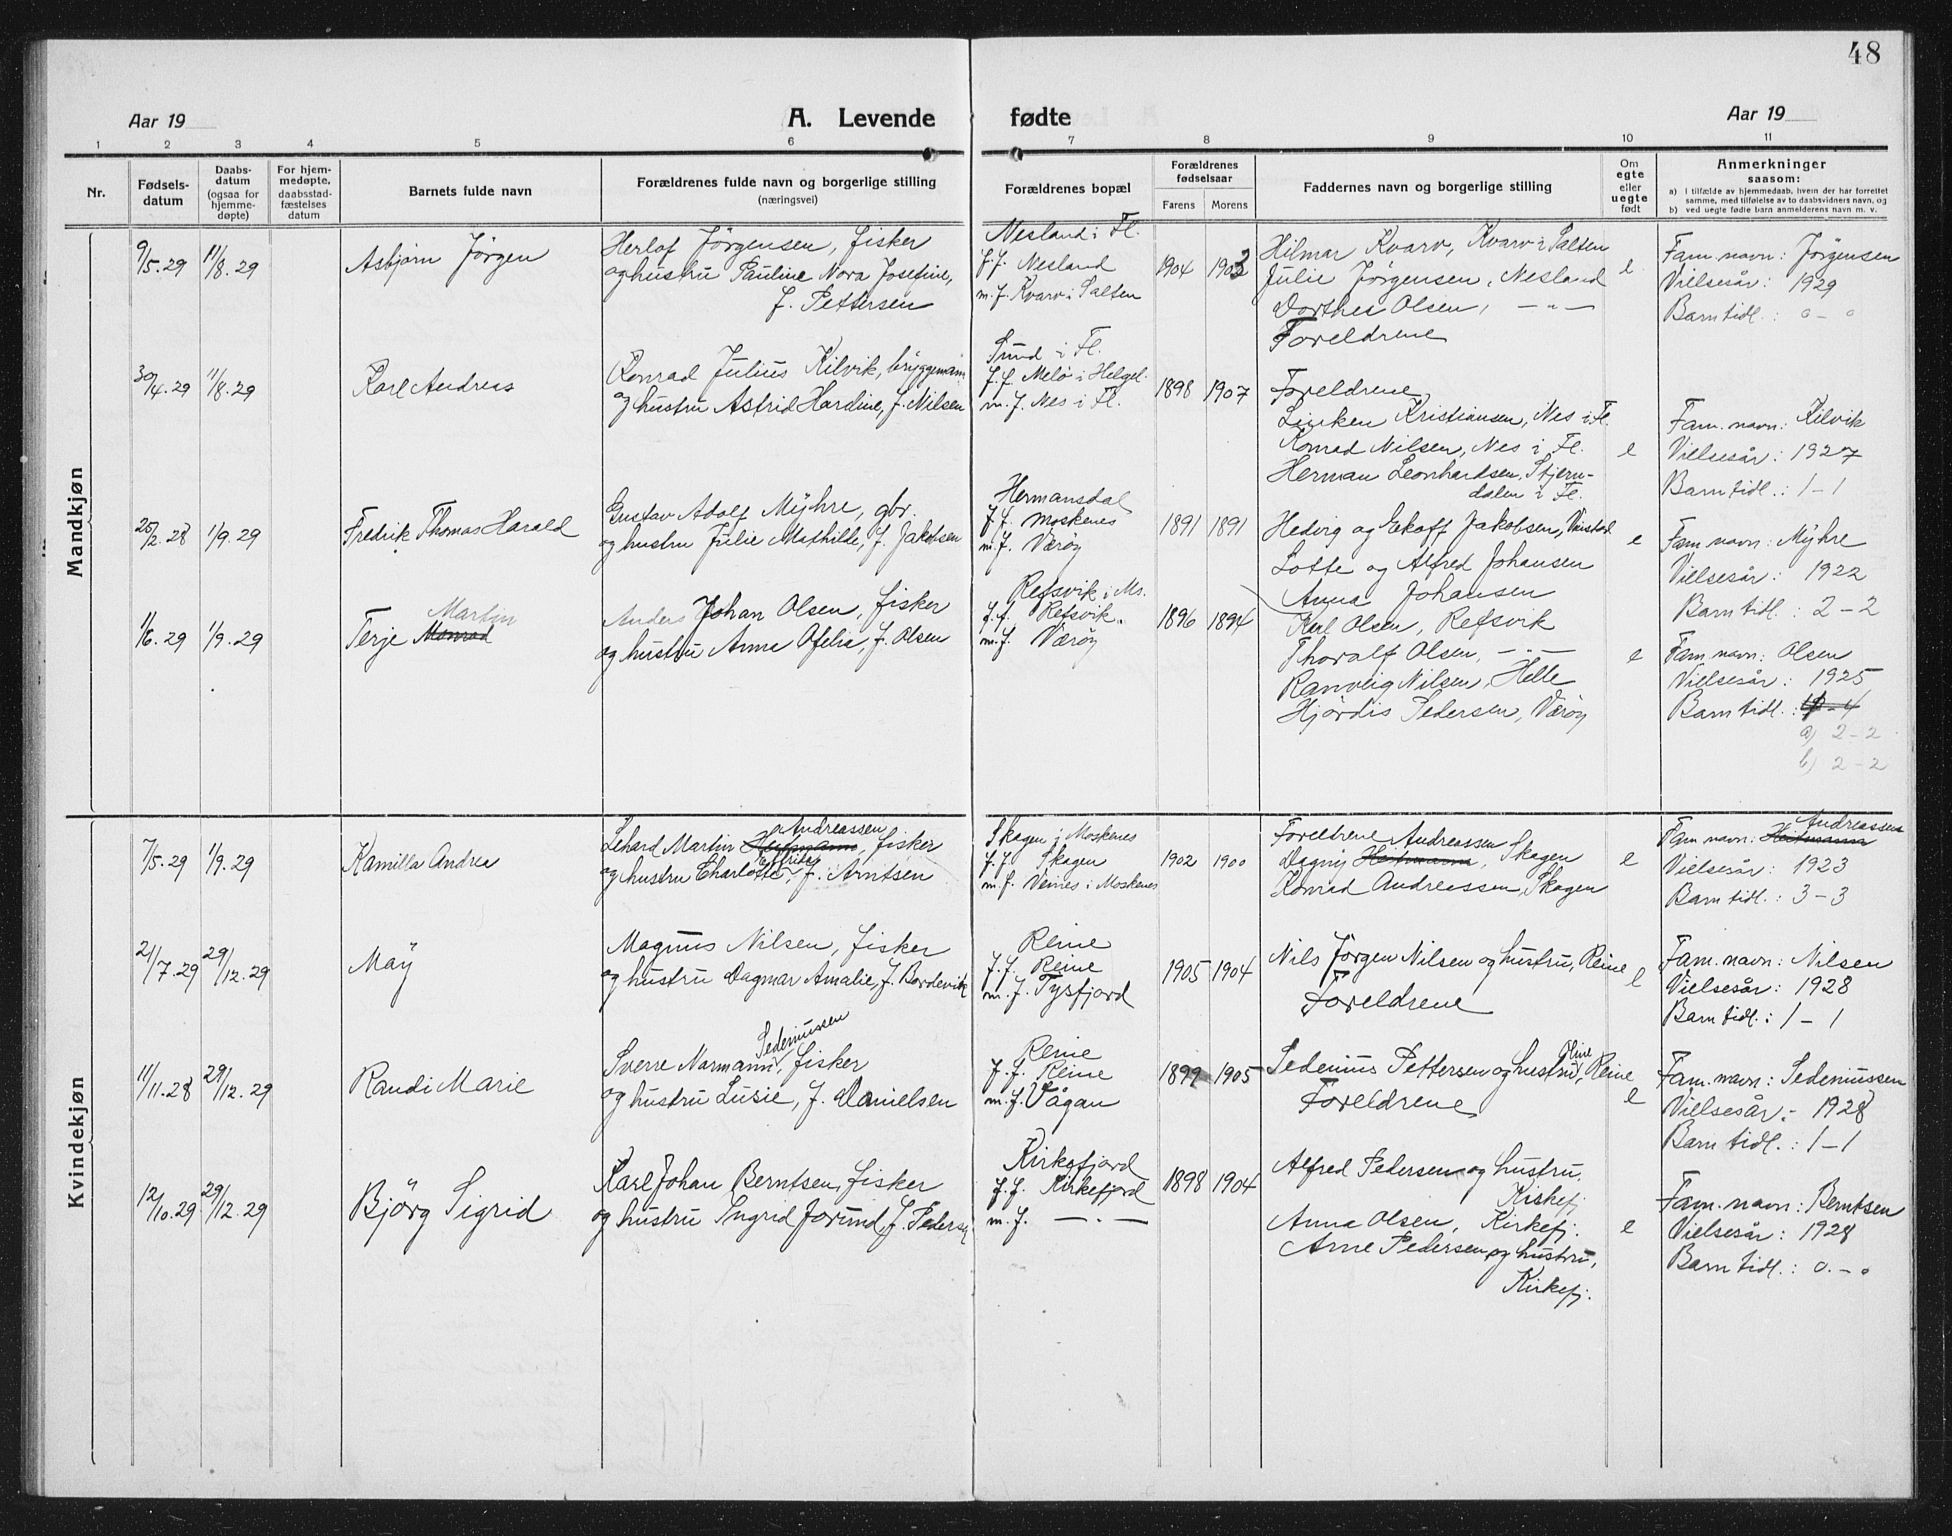 48
Aar 19
A. Levende fødte
Aar 19
1 2 3 4 5 6 7 8 9 10 11
Nr.
Fødsels-
datum
Daabs-
datum
(ogsaa for
hjemme-
døpte)
For hjem-
medøpte,
daabsstad-
fæstelses
datum
Barnets fulde navn
Forældrenes fulde navn og borgerlige stilling
(næringsvei)
Forældrenes bopæl
Forældrenes
fødselsaar
Farens Morens
Faddernes navn og borgerlige stilling
Om
egte
eller
uegte
født
Anmerkninger
saasom:
a) i tilfælde av hjemmedaab, hvem der har forrettet
samme, med tilføielse av to daabsvidners navn, og
b) ved uegte fødte barn anmelderens navn m. v.
Mandkjøn
9/5.29 11/8.29
Asbjørn Jörgen
Herlof Jörgensen, fisker
og hustru Pauline Nora Josefine,
f. Pettersen
Nesland i Fl.
f.f. Nesland
m.f. Kvarv i Salten
1904 1903
Hilmar Kvarv, Kvarv i Salten
Julie Jörgensen, Nesland
Dorthea Olsen, -"-
Foreldrene
e
Fam. navn: Jörgensen
Vielsesår: 1929
Barn tidl.: 0 - 0
30/4.29 11/8.29
Karl Andreas
Konrad Julius Kilvik, bryggemann
og hustru Astrid Hardine, f. Nilsen
Sund i Fl.
f.f. Melö i Helgel.
m.f. Nes i Fl.
1898 1907
Foreldrene
Linken Kristiansen, Nes i Fl.
Konrad Nilsen, Nes i Fl.
Herman Leonhardsen, Stjern-
dalen i Fl.
e
Fam. navn: Kilvik
Vielsesår: 1927
Barn tidl.: 1-1
25/2.28 1/9.29
Fredrik Thomas Harald
Gustav Adolf Mÿhre, gbr.
og hustru Julie Mathilde, f. Jakobsen
Hermansdal
f.f. Moskenes
m.f. Værøy
1891 1891
Hedvig og Jakobsen,
Lotte og Alfred Johansen
Anna Johansen
e
Fam. navn: Mÿhre
Vielsesår: 1922
Barn tidl.: 2-2
1/6.29 1/9.29
Martin
Terje Monrad
Anders Johan Olsen, fisker
og hustru Anna Ofelia, f. Olsen
Refsvik i Ms.
f.f. Refsvik.
m.f. Værøy
1896 1894
Karl Olsen, Refsvik
Thoralf Olsen, -"-
Ranveig Nilsen, Helle
Hjördis Pedersen, Værøy
e
Fam. navn: Olsen
Vielsesår: 1925
Barn tidl.: 4-4
a) 2-2
b) 2-2
Kvindekjøn
7/5.29 1/9.29
Kamilla Andrea
Andreassen
Lehard Martin Heitmann, fisker
og hustru Charlotte, f. Arntsen
Skagen i Moskenes
f.f. Skagen
m.f. Veines i Moskenes
1902 1900
Foreldrene
Andreassen
Dagny Heitmann, Skagen
Konrad Andreassen, Skagen
e
Andreassen
Fam. navn: Heitmann
Vielsesår: 1923
Barn tidl.: 3-3
21/7.29 29/12.29
Maÿ
Magnus Nilsen, fisker
og hustru Dagmar Amalie, f. Bordevik
Reine
f.f. Reine
m.f. Tysfjord
1905 1904
Nils Jörgen Nilsen og hustru, Reine
Foreldrene
e
Fam. navn: Nilsen
Vielsesår: 1928
Barn tidl.: 1-1
11/11.28 29/12.29
Randi Marie
Sedeniussen
Sverre Normann, fisker
og hustru Lusie, f. Danielsen
Reine
f.f. Reine
m.f. Vågan
1899 1905
Reine
Sedenius Pettersen og hustru, Reine
Foreldrene
e
Fam. navn: Sedeniussen
Vielsesår: 1928
Barn tidl.: 1-1
12/10.29 29/12.29
Björg Sigrid
Karl Johan Berntsen, fisker
og hustru Ingrid Jorund, f. Pedersen
Kirkefjord
f.f. Kirkefjord
m.f. -"-
1898 1904
Alfred Pedersen og hustru,
Kirkefj.
Anna Olsen, Kirkefj.
Arne Pedersen og hustru,
Kirkefj.
e
Fam. navn: Berntsen
Vielsesår: 1928
Barn tidl.: 0 - 0